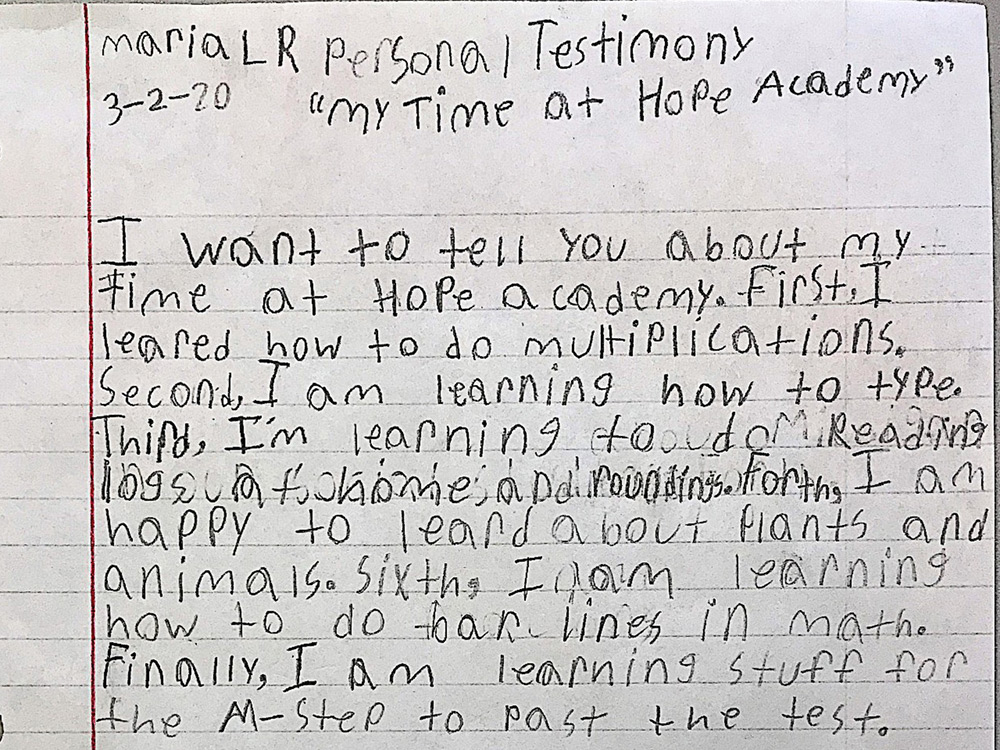 maria LR Personal Testimony
3-2-20 "my Time at Hope Academy"
I want to tell you about my
time at Hope academy. First, I
leared how to do multiplications.
Second, I am learning how to type.
Third, I'm learning to do Reading
logs at home and roundings. Forth, I am
happy to leard about Plants and
animals. Sixth, I am learning
how to do bar lines in math.
Finally, I am learning stuff for
the M-Step to past the test.